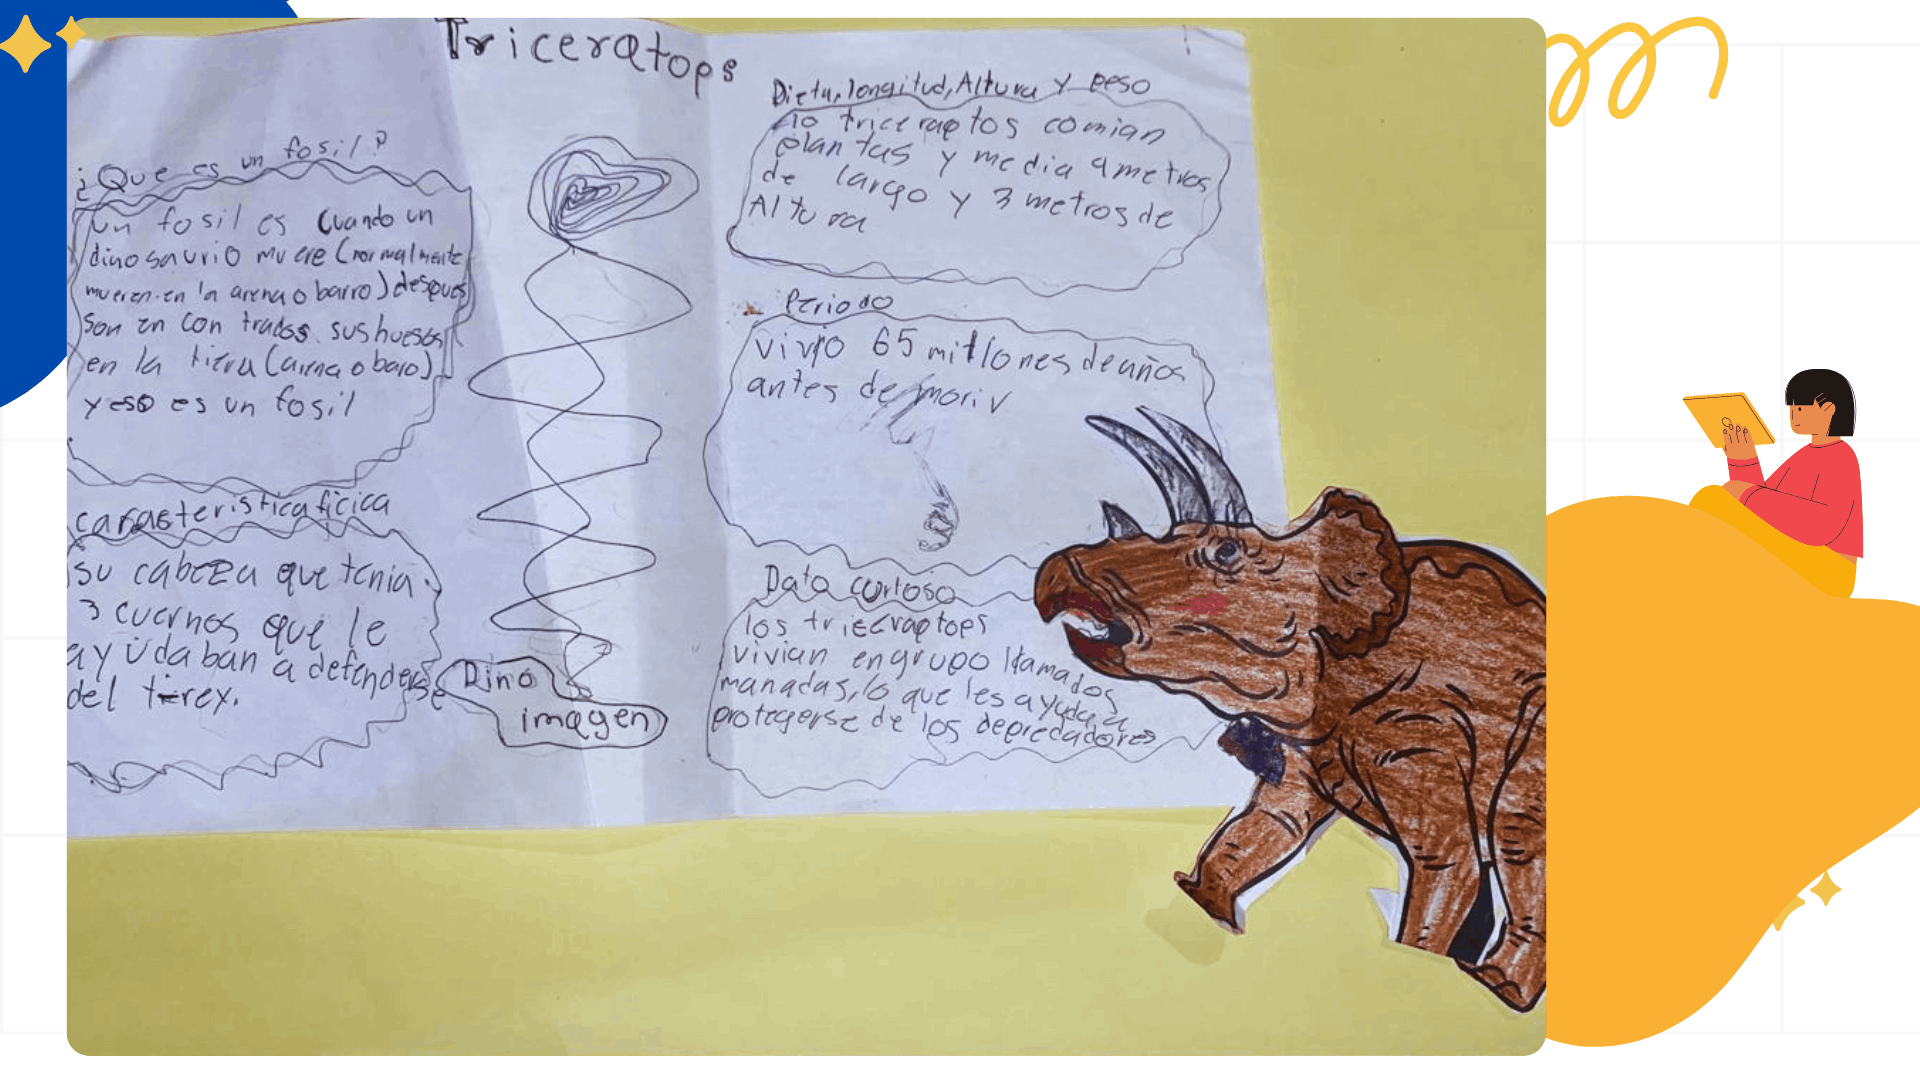 Triceratops
¿Que es un fosil?
un fosil es cuando un
dinosaurio muere (normalmente
mueren en la arena o barro) despues
son en con trados sus huesos
en la tierra (arena o baro)
y eso es un fosil
caracteristica ficica
su cabeza que tenia
3 cuernos que le
ayudaban a defenderse
del t-rex.
Dino
imagen
Dieta, longitud, Altura y peso
lo triceraptos comian
plantas y media 9 metros
de largo y 3 metros de
Altura
Periodo
vivio 65 millones de años
antes de moriv
Dato curioso
los triecraptops
vivian en grupo llamados
manadas, lo que les ayuda a
protegerse de los depredadores